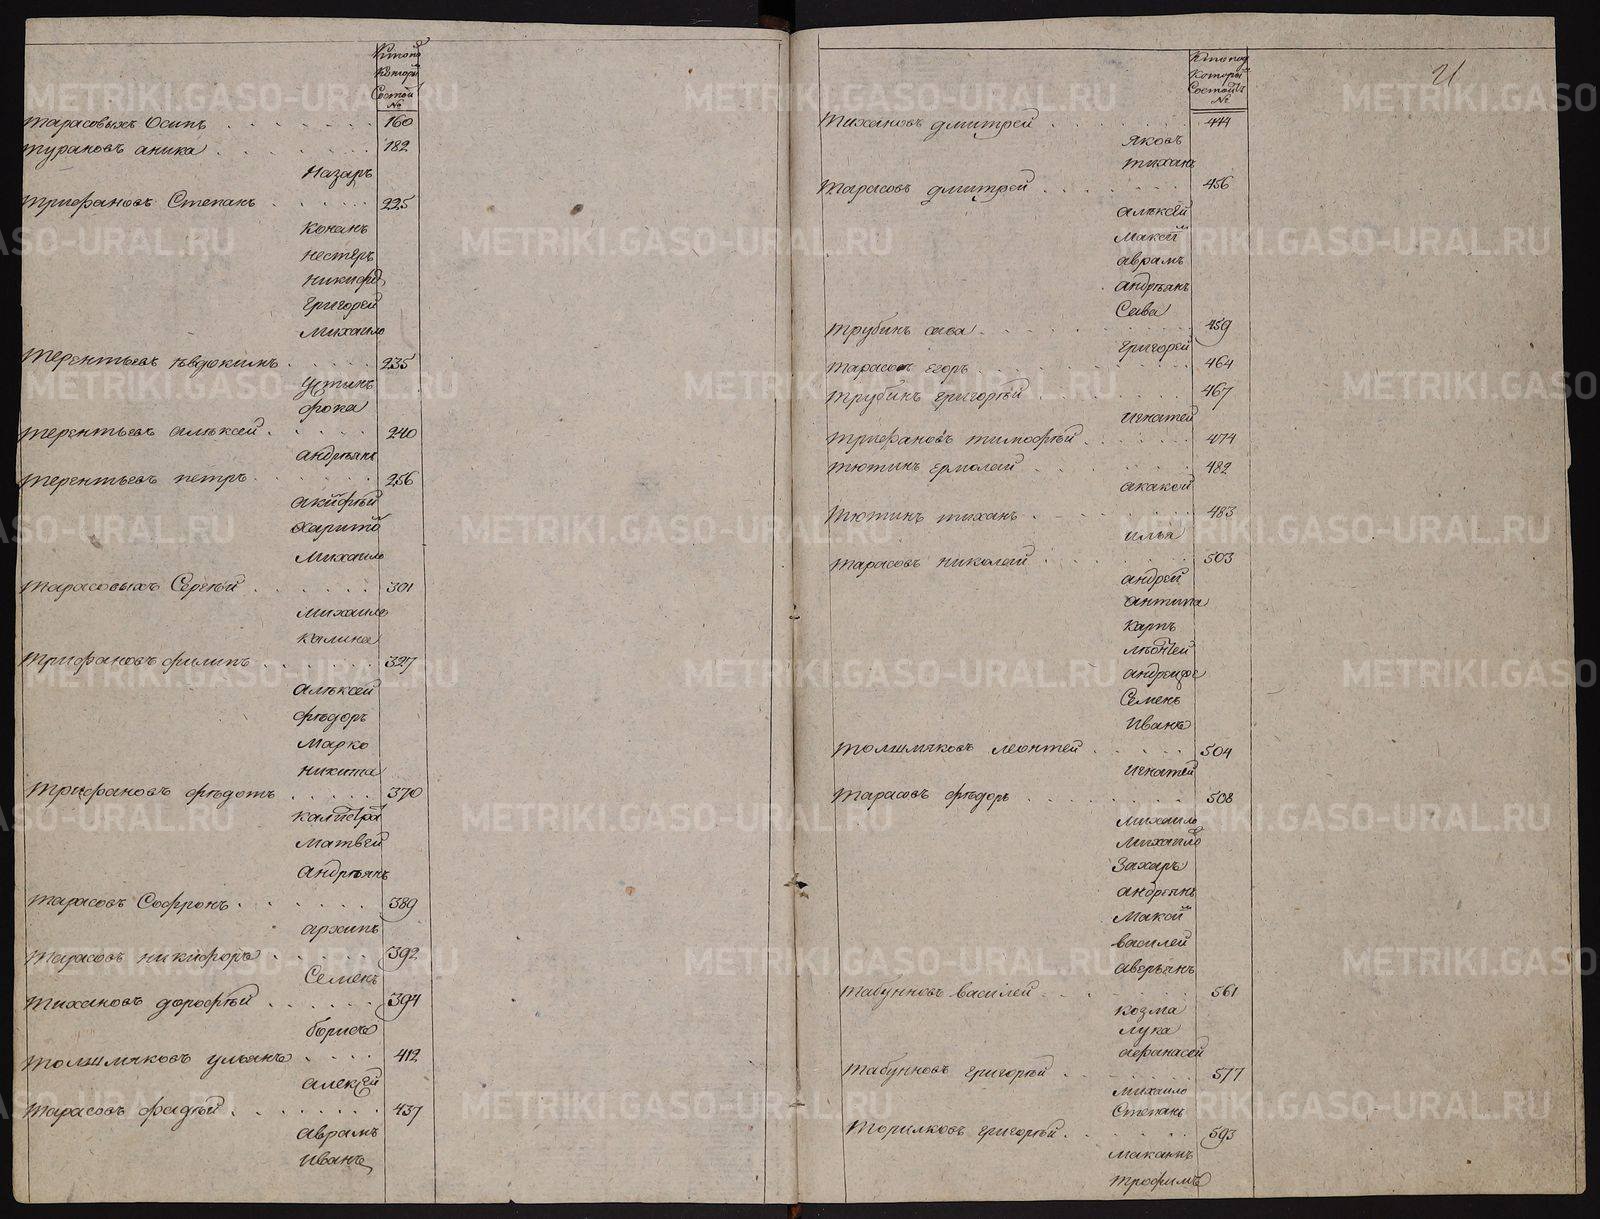 Кто по
Которы
Состои
№
Тарасовыхъ Осипъ . . . . . . . 160
Турановъ аника . . . . . . 182
Назаръ
Трифановъ Степанъ . . . . . 225
Конанъ
нестеръ
никифо
Григорей
михаило
Терентьевъ Ѣвдокимъ . . . . . 235
устинъ
фока
Терентьевъ алѣксей . . . . . 240
андрѣянъ
Терентьевъ петръ . . . . . . 256
акифѣй
харито
михаило
Тарасовыхъ Сергѣй . . . . . . 301
михаило
калина
Трифановъ филипъ . . . . . . 327
алѣксей
фѣдоръ
Марко
никита
Трифановъ фѣдотъ . . . . . 370
калистра
матвей
андрѣянъ
Тарасовъ Софронъ . . . . . . 389
архипъ
Тарасовъ никифоръ . . . . . 392
Семенъ
Тихановъ дорофѣй . . . . . . 394
борисъ
Толшмяковъ ульянъ . . . . 412
алексей
Тарасовъ фадѣй . . . . . . . 437
аврамъ
иванъ
21
Кто под
Которы
Состоитъ
№
Тихановъ дмитрей . . . . . . 444
яковъ
тиханъ
Тарасовъ дмитрей . . . . . . 456
алѣксей
Макси
аврамъ
андрѣянъ
Сава
Трубинъ сава . . . . . . . 459
григорей
Тарасовъ егоръ . . . . . . . 464
Трубинъ григорѣй . . . . . . 467
игнатей
Трифановъ тимофѣй . . . . . 474
Тютинъ ермолай . . . . . . 482
акакей
Тютинъ тиханъ . . . . . . . 483
илья
Тарасовъ николай . . . . . . 503
андрей
антипа
карпъ
андреи
Семенъ
Иванъ
Толшмяковъ леонтей . . . . . 504
игнатей
Тарасовъ фѣдоръ . . . . . . . 508
михаило
михаило
Захаръ
андрѣянъ
василей
аверьянъ
Табунновъ василей . . . . . . 561
козма
лука
афанасей
Табунновъ григорѣй . . . . . . 577
михаило
Степанъ
Торилковъ григорѣй . . . . . 593
трофимъ
METRIKI.GASO-URAL.RU